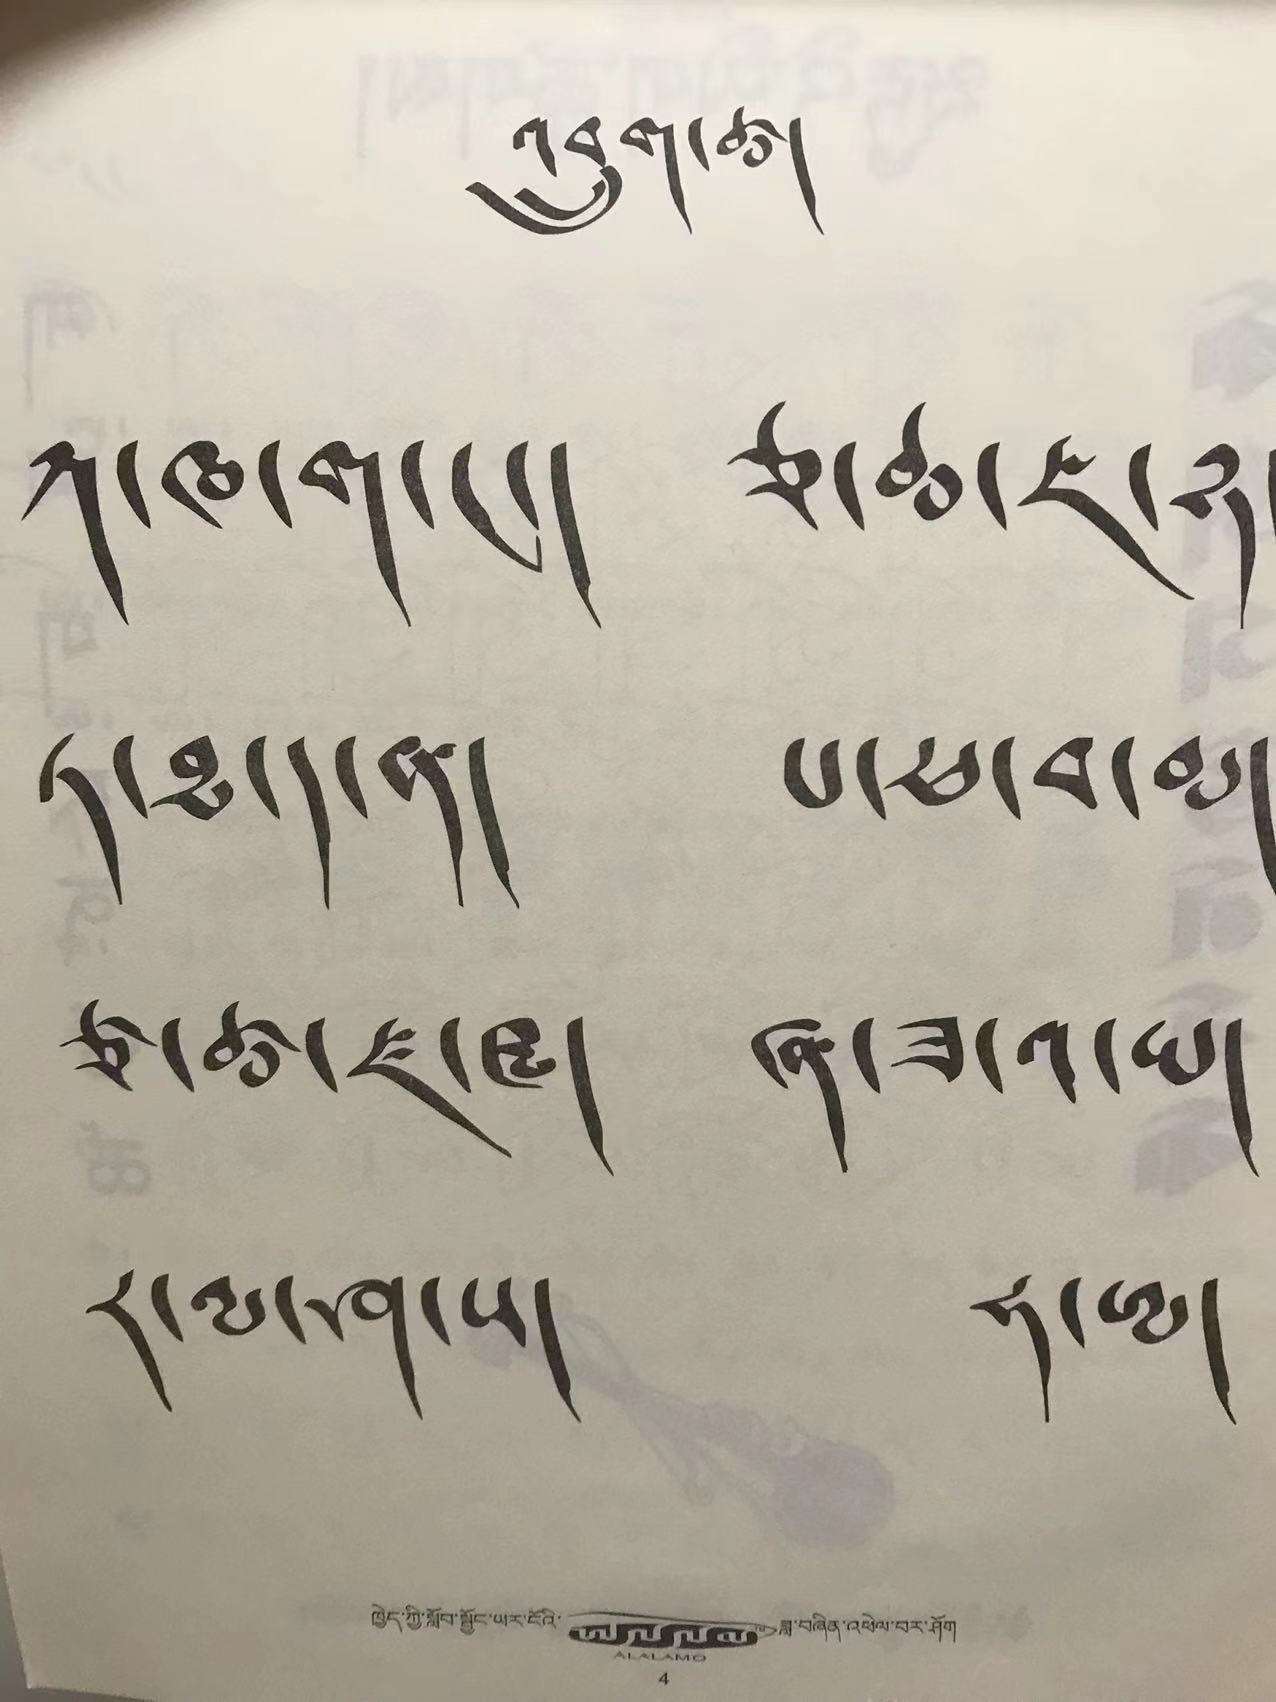 འབྲུག་ཚ།
ཀ་ཁ་ག་ང་། ཅ་ཆ་ཇ་ཉ
ཏ་ཐ་ད་ན། པ་ཕ་བ་མ།
ཙ་ཚ་ཛ་ཝ། ཞ་ཟ་འ་ཡ།
ར་ལ་ཤ་ས། ཧ་ཨ།
ཁྱེད་ཀྱི་སློབ་སྦྱོང་ཡར་ངོའི་ ཟླ་བཞིན་འཕེལ་བར་ཤོག
ALALAMO
4